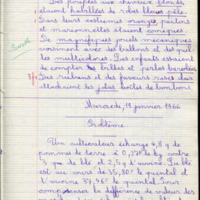 Des poupées aux cheveux blonds
étaient habillées de robes bleu pâle.
Dans leurs costumes rouges, pantins
et marionnettes étaient comiques.
De magnifiques jouets mécaniques
voisinaient avec des ballons et des quilles
multicolores. Des enfants essaient
de compter les billes et perles
Des rubans et des faveurs roses
attachaient les jolies boîtes de bonbons
Mercredi, 19 janvier 1966
Problème
Un cultivateur échange 4,8 q de
pommes de terre à 0,27 F le kg contre
3 q de blé et 2,5 q d'avoine. Le blé
est au cours de 35,80 F le quintal et
l'avoine 37,96 F le quintal. Pour
compenser la différence de valeur des